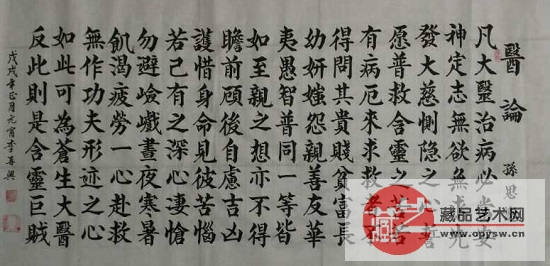 醫論
孫思
凡大毉治病必當安
神定志無欲無求先
發大慈惻隱之心誓
愿普救含靈之苦若
有病厄來求救者不
得問其貴賤貧富長
幼妍媸怨親善友華
夷愚智普同一等皆
如至親之想亦不得
瞻前顧後自慮吉凶
護惜身命見彼苦惱
若己有之深心凄愴
勿避嶮巇晝夜寒暑
飢渴疲勞一心赴救
無作功夫形迹之心
如此可為蒼生大醫
反此則是含靈巨賊
戊戌年正月元宵李善興
藏品艺术网
www.cpysw.com